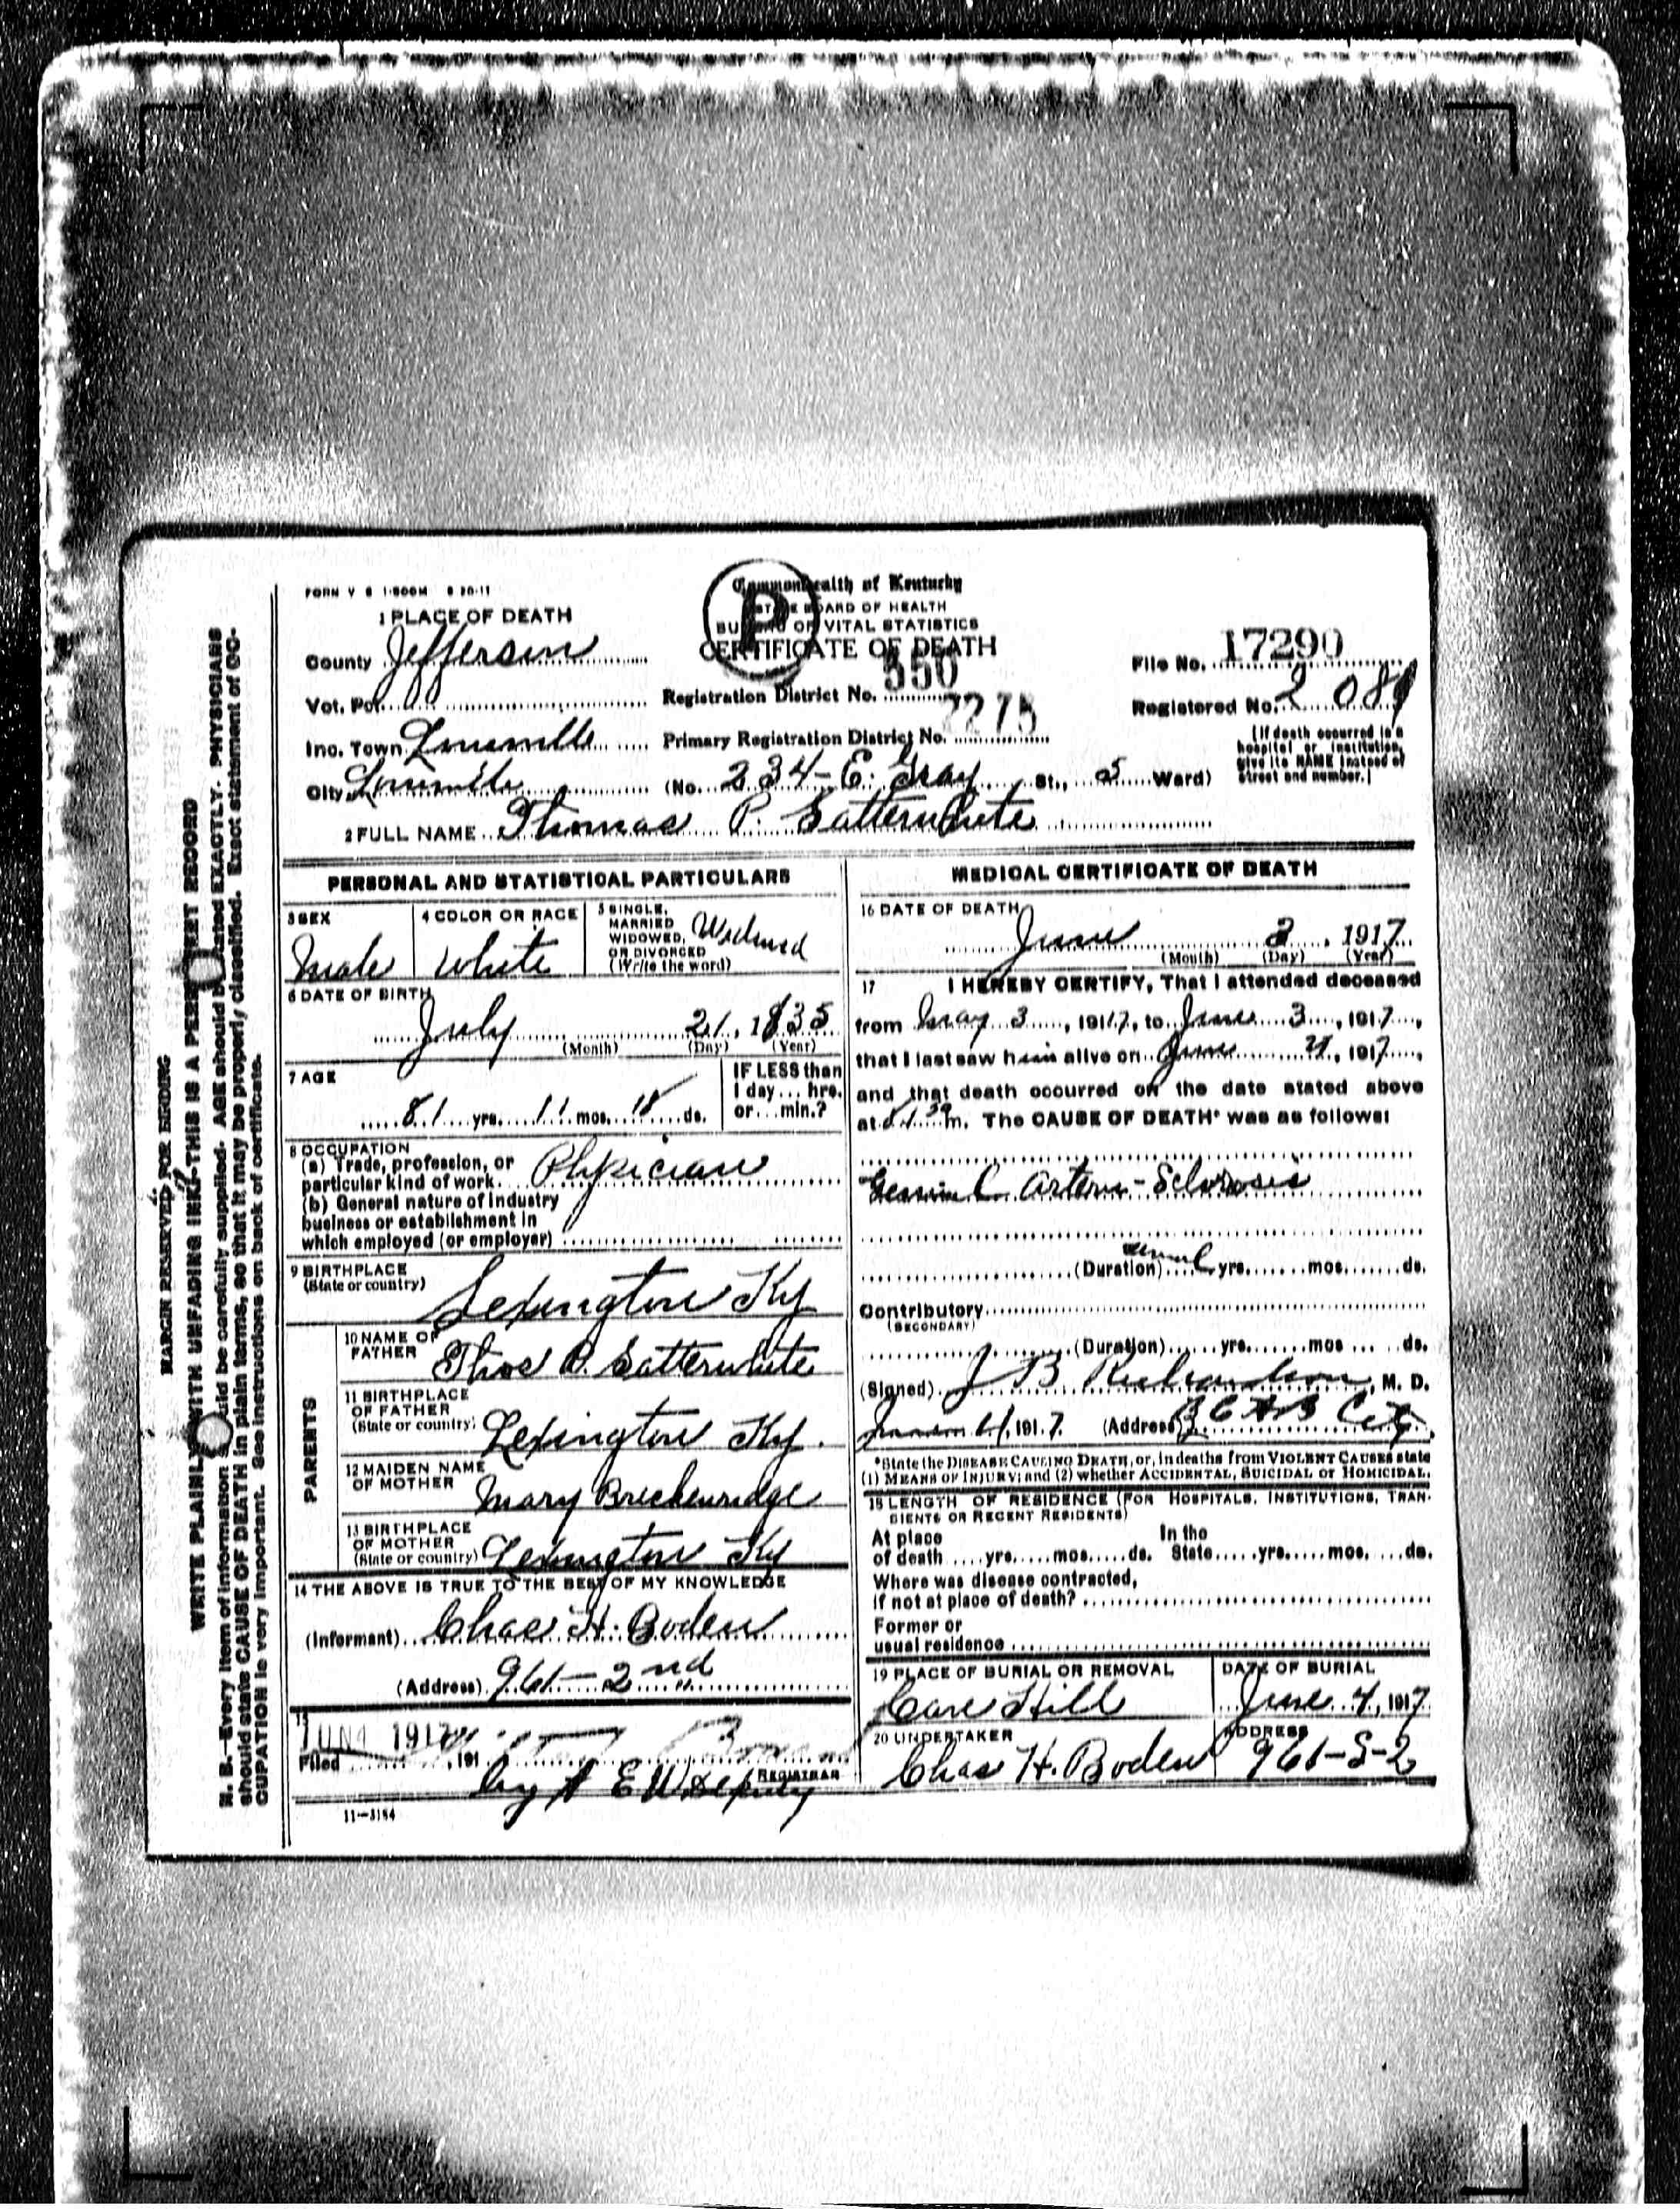 FORM V S 1-500M 8 20-11
Commonwealth of Kentucky
STATE BOARD OF HEALTH
BUREAU OF VITAL STATISTICS
CERTIFICATE OF DEATH
P
1 PLACE OF DEATH
County Jefferson
Vot. Pct.
Inc. Town Louisville
City Louisville
Registration District No. 550
Primary Registration District No. 2275
File No. 17290
Registered No. 2 089
(No. 234- E. Gray St., 5 Ward)
(If death occurred in a
hospital or institution,
give its NAME instead of
street and number.)
2 FULL NAME Thomas P. Satterwhite
PERSONAL AND STATISTICAL PARTICULARS
3 SEX
Male
4 COLOR OR RACE
White
5 SINGLE,
MARRIED
WIDOWED,
OR DIVORCED
(Write the word)
Widowed
6 DATE OF BIRTH
July 21, 1835
(Month) (Day) (Year)
7 AGE
81 yrs. 11 mos. ds.
IF LESS than
1 day... hrs.
or... min.?
8 OCCUPATION
(a) Trade, profession, or
particular kind of work. Physician
(b) General nature of Industry
business or establishment in
which employed (or employer)
9 BIRTHPLACE
(State or country)
Lexington Ky
PARENTS
10 NAME OF
FATHER
Thos P. Satterwhite
11 BIRTHPLACE
OF FATHER
(State or country)
Lexington Ky.
12 MAIDEN NAME
OF MOTHER
Mary Breckenridge
13 BIRTHPLACE
OF MOTHER
(State or country)
Lexington Ky
14 THE ABOVE IS TRUE TO THE BEST OF MY KNOWLEDGE
(Informant) Chas H. Boden
(Address) 961- 2nd
15
JUN 4 1917
Filed , 191
REGISTRAR
by Deputy
11-3184
MEDICAL CERTIFICATE OF DEATH
16 DATE OF DEATH
June 3, 1917
(Month) (Day) (Year)
17 I HEREBY CERTIFY, That I attended deceased
from May 3, 1917, to June 3, 1917,
that I last saw him alive on June , 1917,
and that death occurred on the date stated above
at m. The CAUSE OF DEATH* was as follows:
Arterio-Sclerosis
(Duration) yrs. mos. ds.
Contributory
(SECONDARY)
(Duration) yrs. mos ds.
(Signed) J B Richardson, M. D.
, 1917. (Address)
*State the DISEASE CAUSING DEATH, or, in deaths from VIOLENT CAUSES state
(1) MEANS OF INJURY; and (2) whether ACCIDENTAL, SUICIDAL or HOMICIDAL.
18 LENGTH OF RESIDENCE (FOR HOSPITALS, INSTITUTIONS, TRAN-
SIENTS OR RECENT RESIDENTS)
At place In the
of death yrs. mos. ds. State yrs. mos. ds.
Where was disease contracted,
if not at place of death?
Former or
usual residence
19 PLACE OF BURIAL OR REMOVAL
Cave Hill
DATE OF BURIAL
June 4, 1917
20 UNDERTAKER
Chas H. Boden
ADDRESS
961-S-2
MARGIN RESERVED FOR BINDING
WRITE PLAINLY WITH UNFADING INK-THIS IS A PERMANENT RECORD
N. B.-Every item of information should be carefully supplied. AGE should be stated EXACTLY. PHYSICIANS
should state CAUSE OF DEATH in plain terms, so that it may be properly classified. Exact statement of OC-
CUPATION is very important. See instructions on back of certificate.